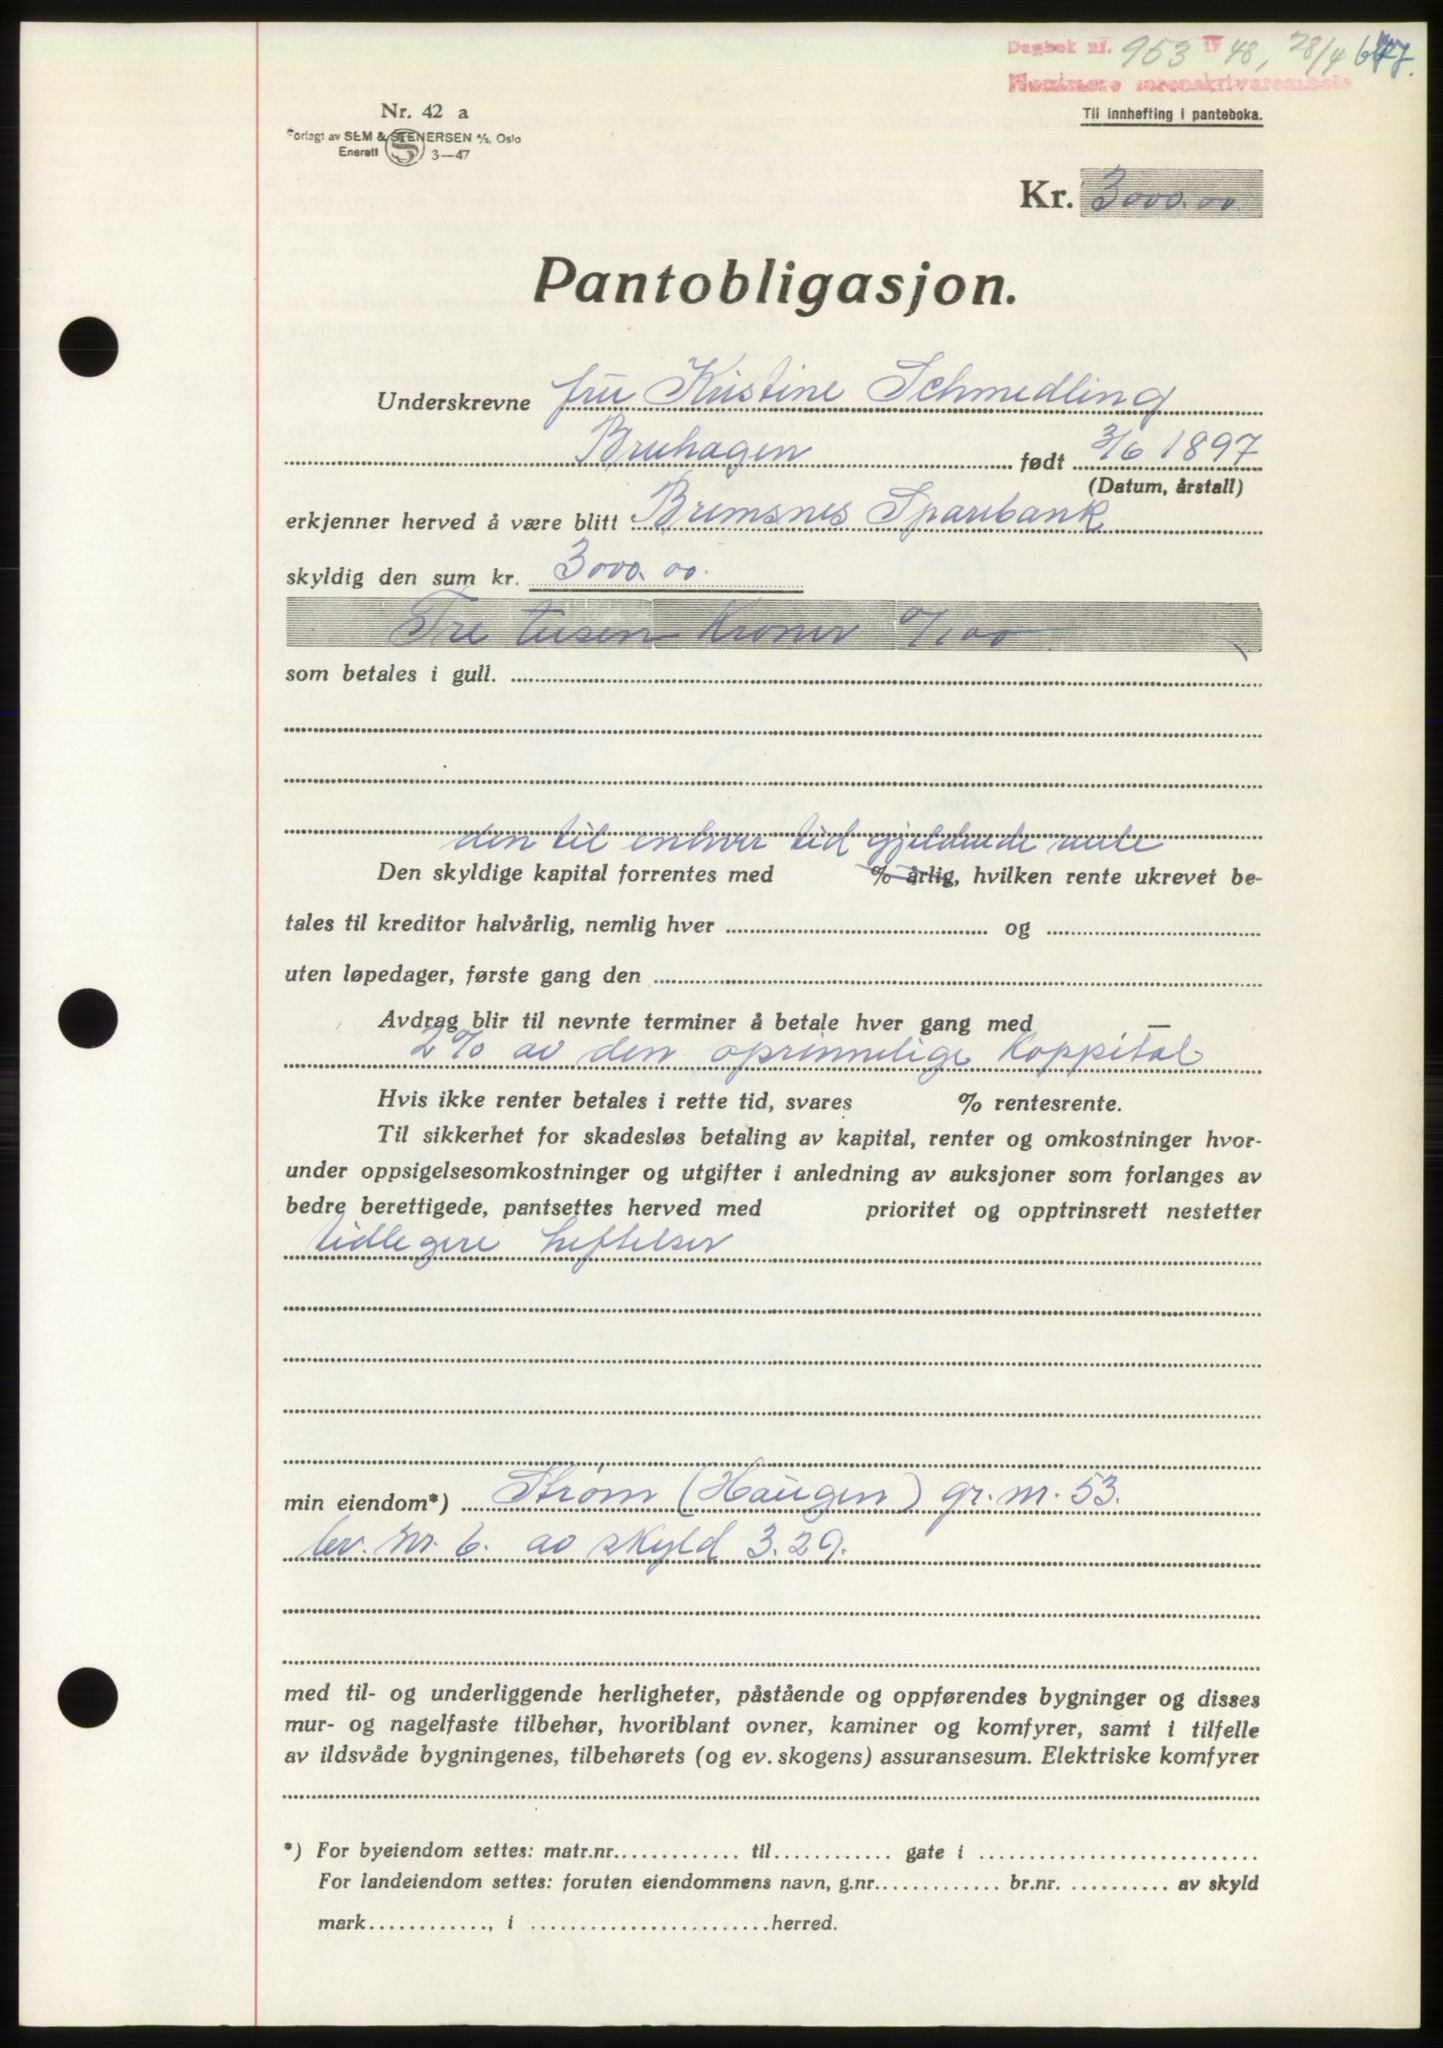 Dagbok nr. 953 IV 48, 28/4 647.
Nordmøre sorenskriverembete
Nr. 42 a
Forlagt av SEM & STENERSEN A/S, Oslo
Enerett S 3—47
Til innhefting i panteboka.
Kr. 3000.00.
Pantobligasjon.
Underskrevne fru Kristine Schmedling
Bruhagen født 3/6 1897
(Datum, årstall)
erkjenner herved å være blitt Bremsnes Sparebank
skyldig den sum kr. 3000.00.
Tre tusen Kroner 0/100
som betales i gull.
den til enhver tid gjeldende rente
Den skyldige kapital forrentes med % årlig, hvilken rente ukrevet be-
tales til kreditor halvårlig, nemlig hver og
uten løpedager, første gang den
Avdrag blir til nevnte terminer å betale hver gang med
2% av den oprinnelige Kappital
Hvis ikke renter betales i rette tid, svares % rentesrente.
Til sikkerhet for skadesløs betaling av kapital, renter og omkostninger hvor-
under oppsigelsesomkostninger og utgifter i anledning av auksjoner som forlanges av
bedre berettigede, pantsettes herved med prioritet og opptrinsrett nestetter
tidlegere heftelser
min eiendom*) Strøm (Haugen) gr. nr. 53.
br. nr. 6. av skyld 3.29.
med til- og underliggende herligheter, påstående og oppførendes bygninger og disses
mur- og nagelfaste tilbehør, hvoriblant ovner, kaminer og komfyrer, samt i tilfelle
av ildsvåde bygningenes, tilbehørets (og ev. skogens) assuransesum. Elektriske komfyrer
*) For byeiendom settes: matr.nr. til gate i
For landeiendom settes: foruten eiendommens navn, g.nr. br.nr. av skyld
mark , i herred.